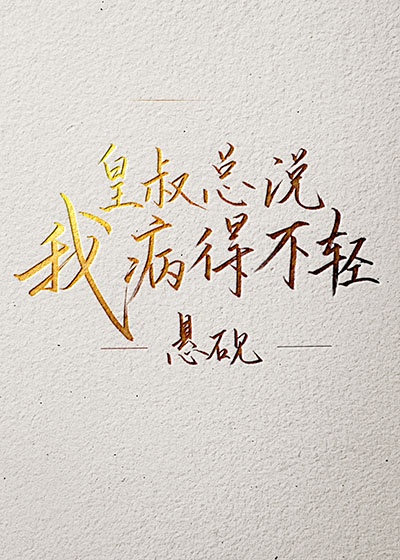 皇叔总说
我病得不轻
悬砚